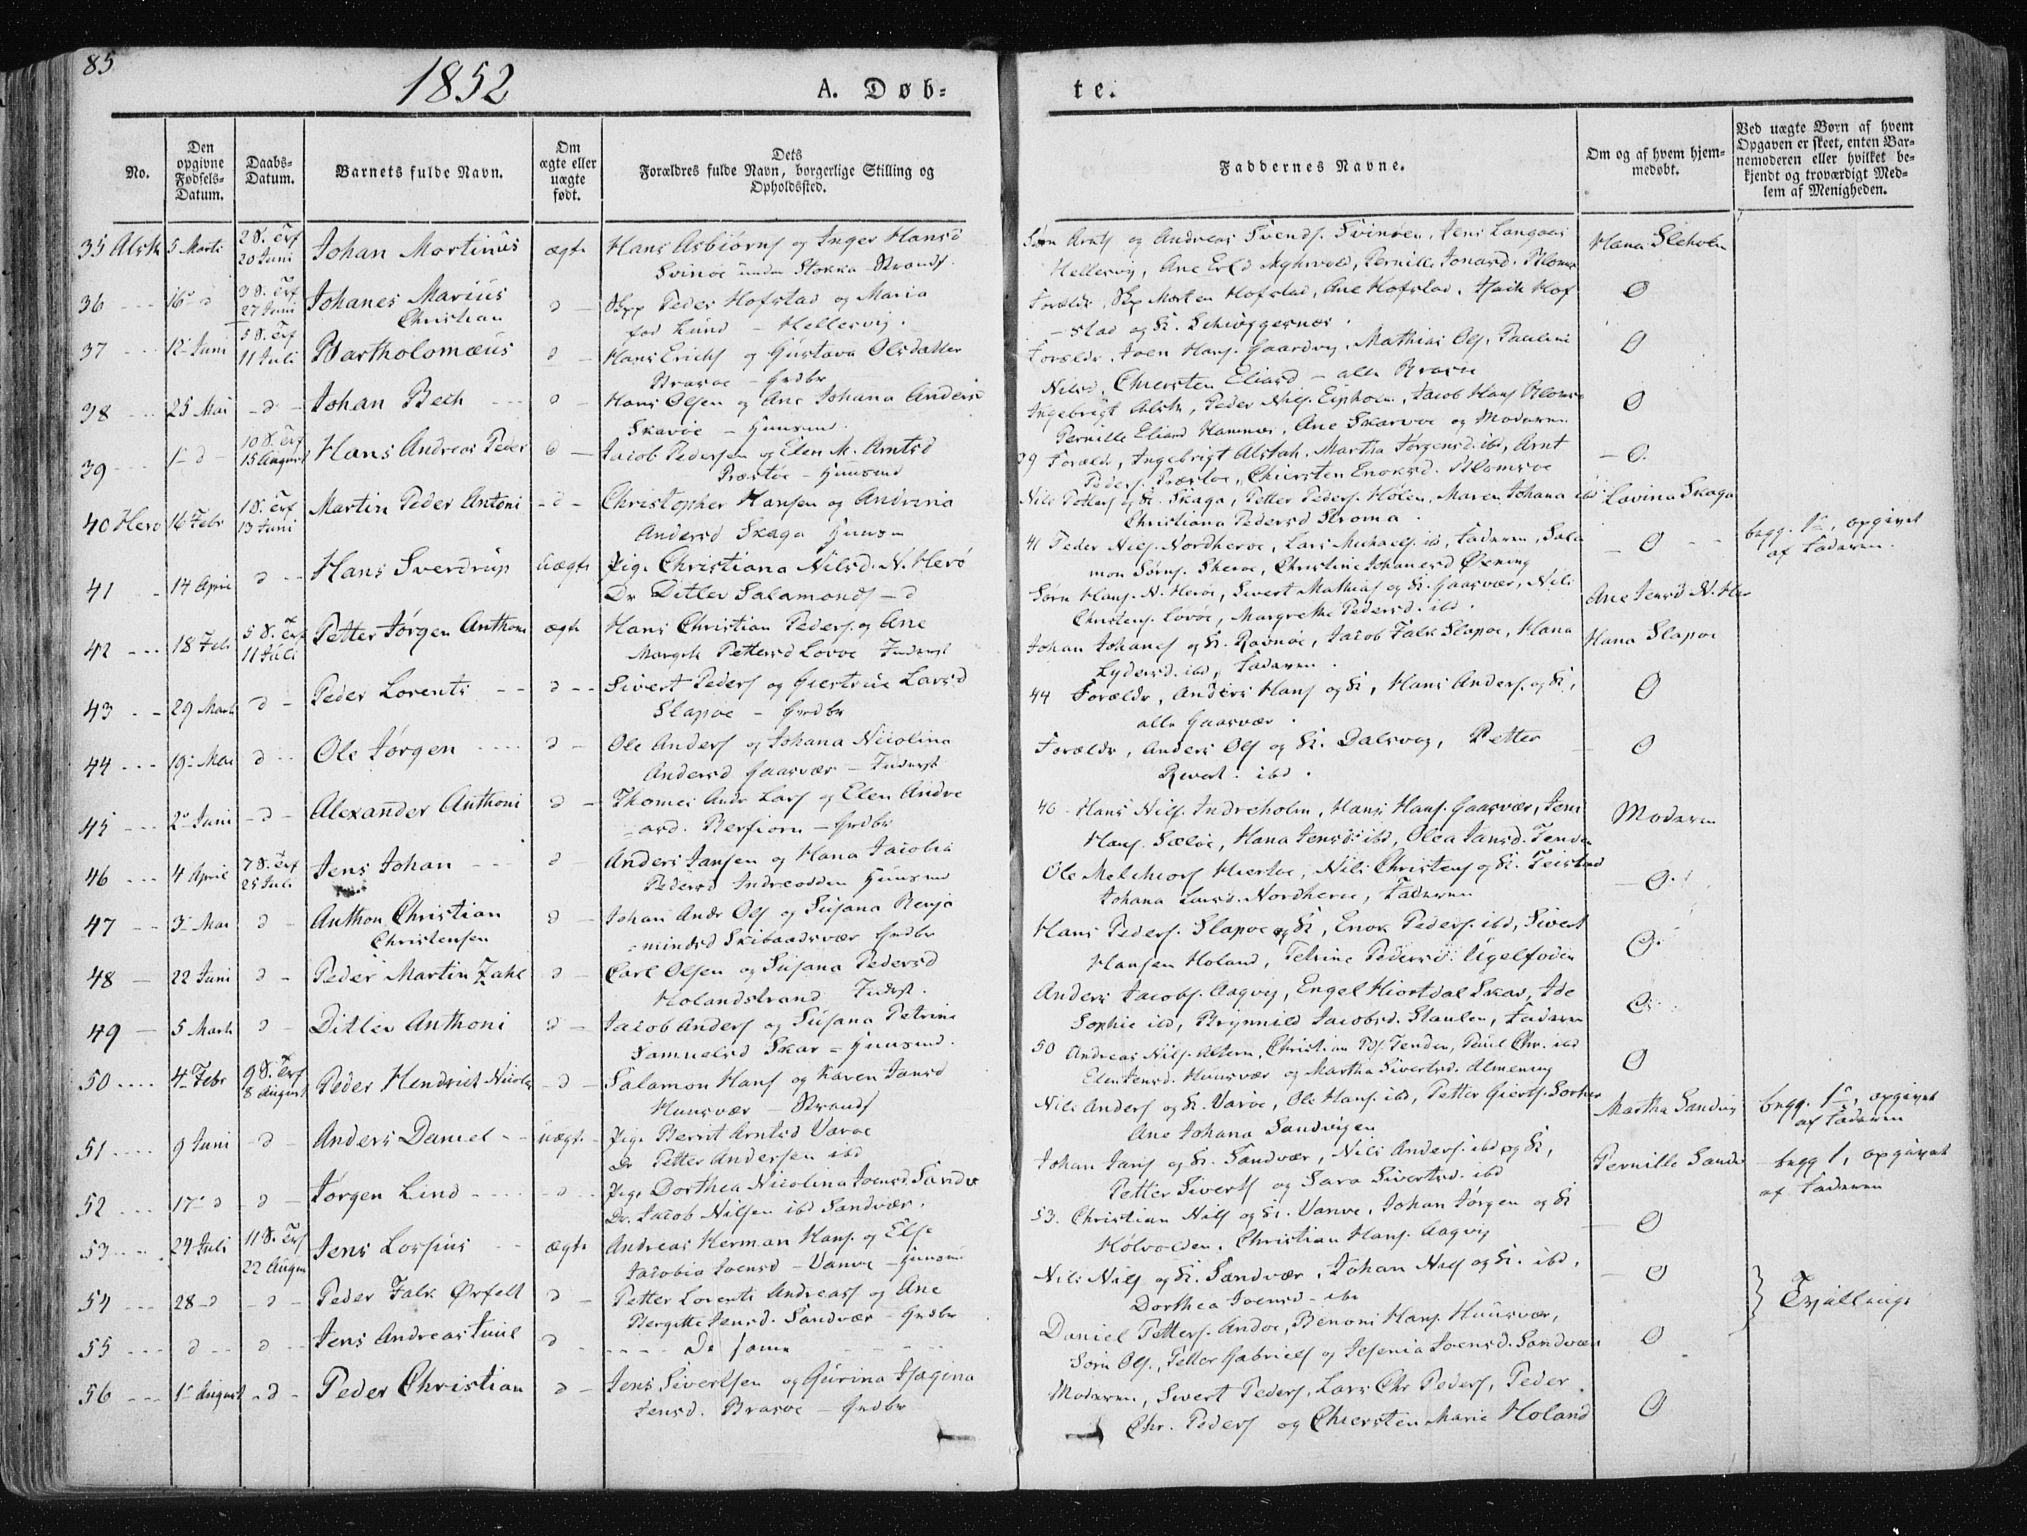 85
1852
A. Døb-
te.
No.
Den opgivne Fødsels-Datum.
Daabs-Datum.
Barnets fulde Navn.
Om ægte eller uægte født.
Dets Forældres fulde Navn, borgerlige Stilling og Opholdssted.
Faddernes Navne.
Om og af hvem hjem-medøbt.
Ved uægte Børn af hvem Opgaven er skeet, enten Bar-nemoderen eller hvilket be-kjendt og troværdigt Med-lem af Menigheden.
35 Alsth 5 Marti 2 S. Trf 20 Juni Johan Mortinus ægte Hans Asbiørns og Inger Hansd
Svinøe under Stokka
Hellesvig
36 16 d 3 S. Trf 27 Juni Johanes Marius Christian d Peder Hofstad og Maria
fød Lund Hellesvig.
Forældr, Morten Hofstad, Ane Hofstad
O
37 12 Juni 5 S. Trf 11 Juli Bartholomæus d Hans Erichs og Gustava Olsdatter
Brasøe Grdbr
Forældr, Joen Hans. Gaardvig, Mathias Ols.
Nilsd, Chiersten Eliasd alle Brasøe
O
38 25 Mai d Johan Bech d Hans Olsen og Ane Johana Andersd
Skavøe Huusmd.
Pernille Eliasd Hamnes, Ane Skarvøe og Moderen
O
39 1 d 10 S. Trf 15 August Hans Andreas Peder d Jacob Pedersen og Elen M. Arntsd
Præstøe Huusmd
39 Forældr, Ingebrigt Alstah. Martha Jørgensd. ibd, Arnt
Peders. Præstøe, Chiersten Enoksd. Blomsøe
O
40 Herø 16 Febr 1 S. Trf 13 Juni Martin Peder Antoni d Christopher Hansen og Andrina
Andersd Skaga Huusm
Skaga, Petter Peders. Hølen, Maren Johana ibd
Christiana Pedersd Stroma.
Lavina Skaga
41 14 April d Hans Sverdrup Uægte Pig. Christiana Nilsd. N. Herø
Dr Ditlev Salamons d
41 Peder Nils. Nordherøe, Lars Michaels. ibd, Faderen, Sala
mon Sørns. Sherøe, Christine Johanesd Øxning
O
begg. 1, opgivet
af Faderen.
42 18 Feb 5 S. Trf 11 Juli Petter Jørgen Anthoni ægte Hans Christian Peders. og Ane
Margrth Pettersd Lovøe Inderst
Sørn Hans. N. Herøe, Sivert Mathias og K. Gaasvær, Nils
Christens. Lovøe, Margrethe Pedersd. ibd.
Ane Jensd N. Her
43 29 Marti d Peder Lorents d Sivert Peders og Giertrue Larsd
Slapøe Grdbr
Johan Johanes og K. Ravnøe, Jacob Falk Slapøe, Hana
Lydersd. ibd, Faderen.
Hana Slapøe
44 19 Mai d Ole Jørgen d Ole Anders og Johana Nicolina
Andersd Gaasvær Inderst
44 Forældr, Anders Hans og K, Hans Anders. og K,
alle Gaasvær.
O
45 2 Juni d Alexander Anthoni d Thomes Andr Lars og Elen Andre
asd. Grdbr
Forældr, Anders Ols og K. Dalsvaag, Petter
ibd.
O
46 4 April 7 S. Trf 25 Juli Jens Johan d Anders Jansen og Hana Jacobia
Pedersd Indreodden Huusmd
46 Hans Nils. Indreholm, Hans Hans. Gaasvær, Jens
Hans. Sæløe, Hana Jensd ibd, Olea Jansd. Tenden
Moderen
47 3 Mai d Anthon Christian Christensen d Johan Andr Ols og Susana Benja
mindsd Skibaadsvær Grdbr
Ole Melchiors Hiertøe, Nils Christens og K. Teistnd
Johana Larsd. Nordherøe, Faderen
O
48 22 Juni d Peder Martin Zahl d Carl Olsen og Susana Pedersd
Holandstrand Inderst.
Hans Peders. Slapøe og K, Enok Peders. ibd, Sivert
Hansen Holand, Petrine Pedersd. Ugelfoden
O
49 5 Marti d Ditlev Anthoni d Jacob Anders og Susana Petrine
Samuelsd Skar Huusmd.
Anders Jacobs. Aagvig, Engel Hiortdal Skar, Ide
Sophie ibd, Brynnild Jacobsd. Staulen, Faderen
O
50 4 Febr 9 S. Trf 8 August Peder Hendrick Nicolai d Salamon Hans og Karen Jansd
Huusvær Strands
50 Andreas Nils. Altern, Christian Tenden, Poul Chr. ibd
Elen Jensd. Huusvær og Martha Sivertsd. Almening
O
51 9 Juni d Anders Daniel uægte Pige Berrit Arntsd Varøe
Dr Petter Andersen ibd
Nils Anders og K. Varøe, Ole Hans. ibd, Petter Gierts.
Ane Johana Sandvigen
Martha Sandvig
begg. 1, opgivet
af Faderen
52 17 d d Jørgen Lind d Pige Dorthea Nicolina Joensd. Sandv
Dr. Jacob Nilsen ibd Sandvær.
Johan Jans og K. Sandvær, Nils Anders. ibd og K,
Petter Siverts og Sara Sivertsd. ibd
Pernille Sandv
begg 1, opgivet
af Faderen
53 24 Juli 11 S. Trf 22 August Jens Lossius ægte Andreas Herman Hans og Else
Jacobia Joensd Vanve Huusmd
53. Christian Nils og K. Vanve, Johan Jørgen og K
Holvolden, Christian Hans. Aagvig
O
54 28 d d Peder Falk Ørfelt d Petter Lorents Andreass og Ane
Bergitte Jensd. Sandvær Grdbr
Nils Nils og K. Sandvær, Johan Nils og K. ibd,
Dorthea Joensd ibd
O
Tvillinge
55 d d Jens Andreas Juul d De same
Daniel Petters. Andøe, Benoni Hans. Huusvær,
Sørn Ols., Petter Gabriels og Jesenia Joensd. Sandvær
O
56 1 August d Peder Christian d Jens Sivertsen og Gurina Isagina
Jensd. Brasøe Grdbr
Moderen, Sivert Peders, Lars Chr Peders, Peder
Chr. Peders og Chiersten Marie Holand
O